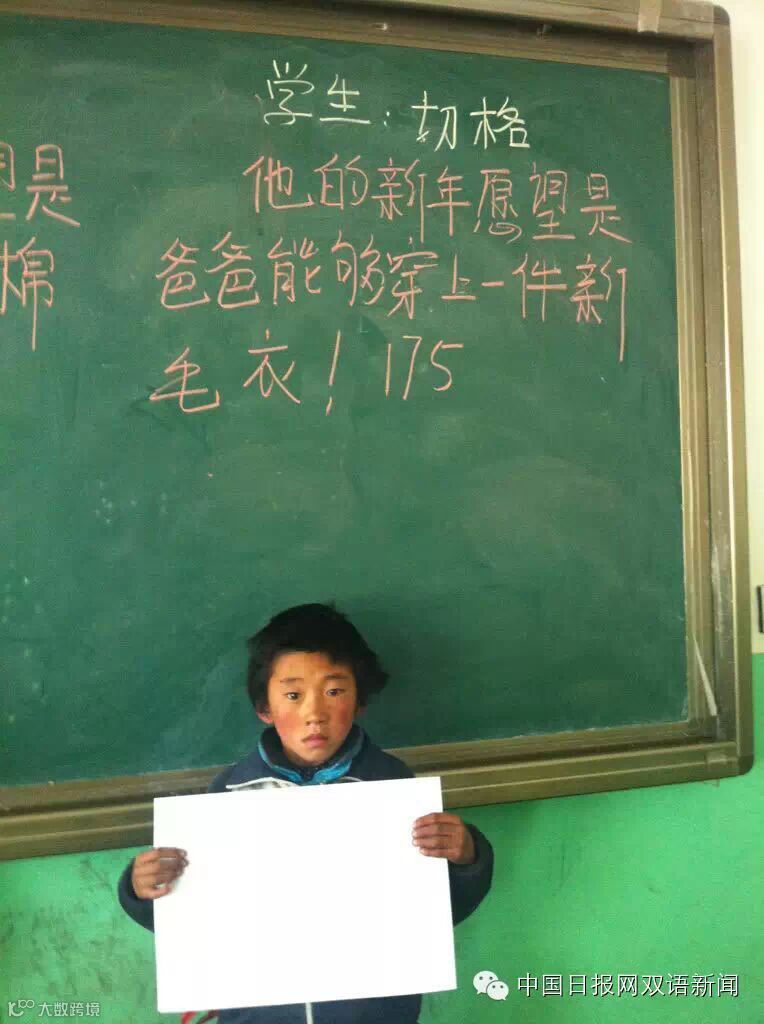 学生：切格
他的新年愿望是
爸爸能够穿上一件新
毛衣！175
是
棉
中国日报网双语新闻
K100 大数跨境